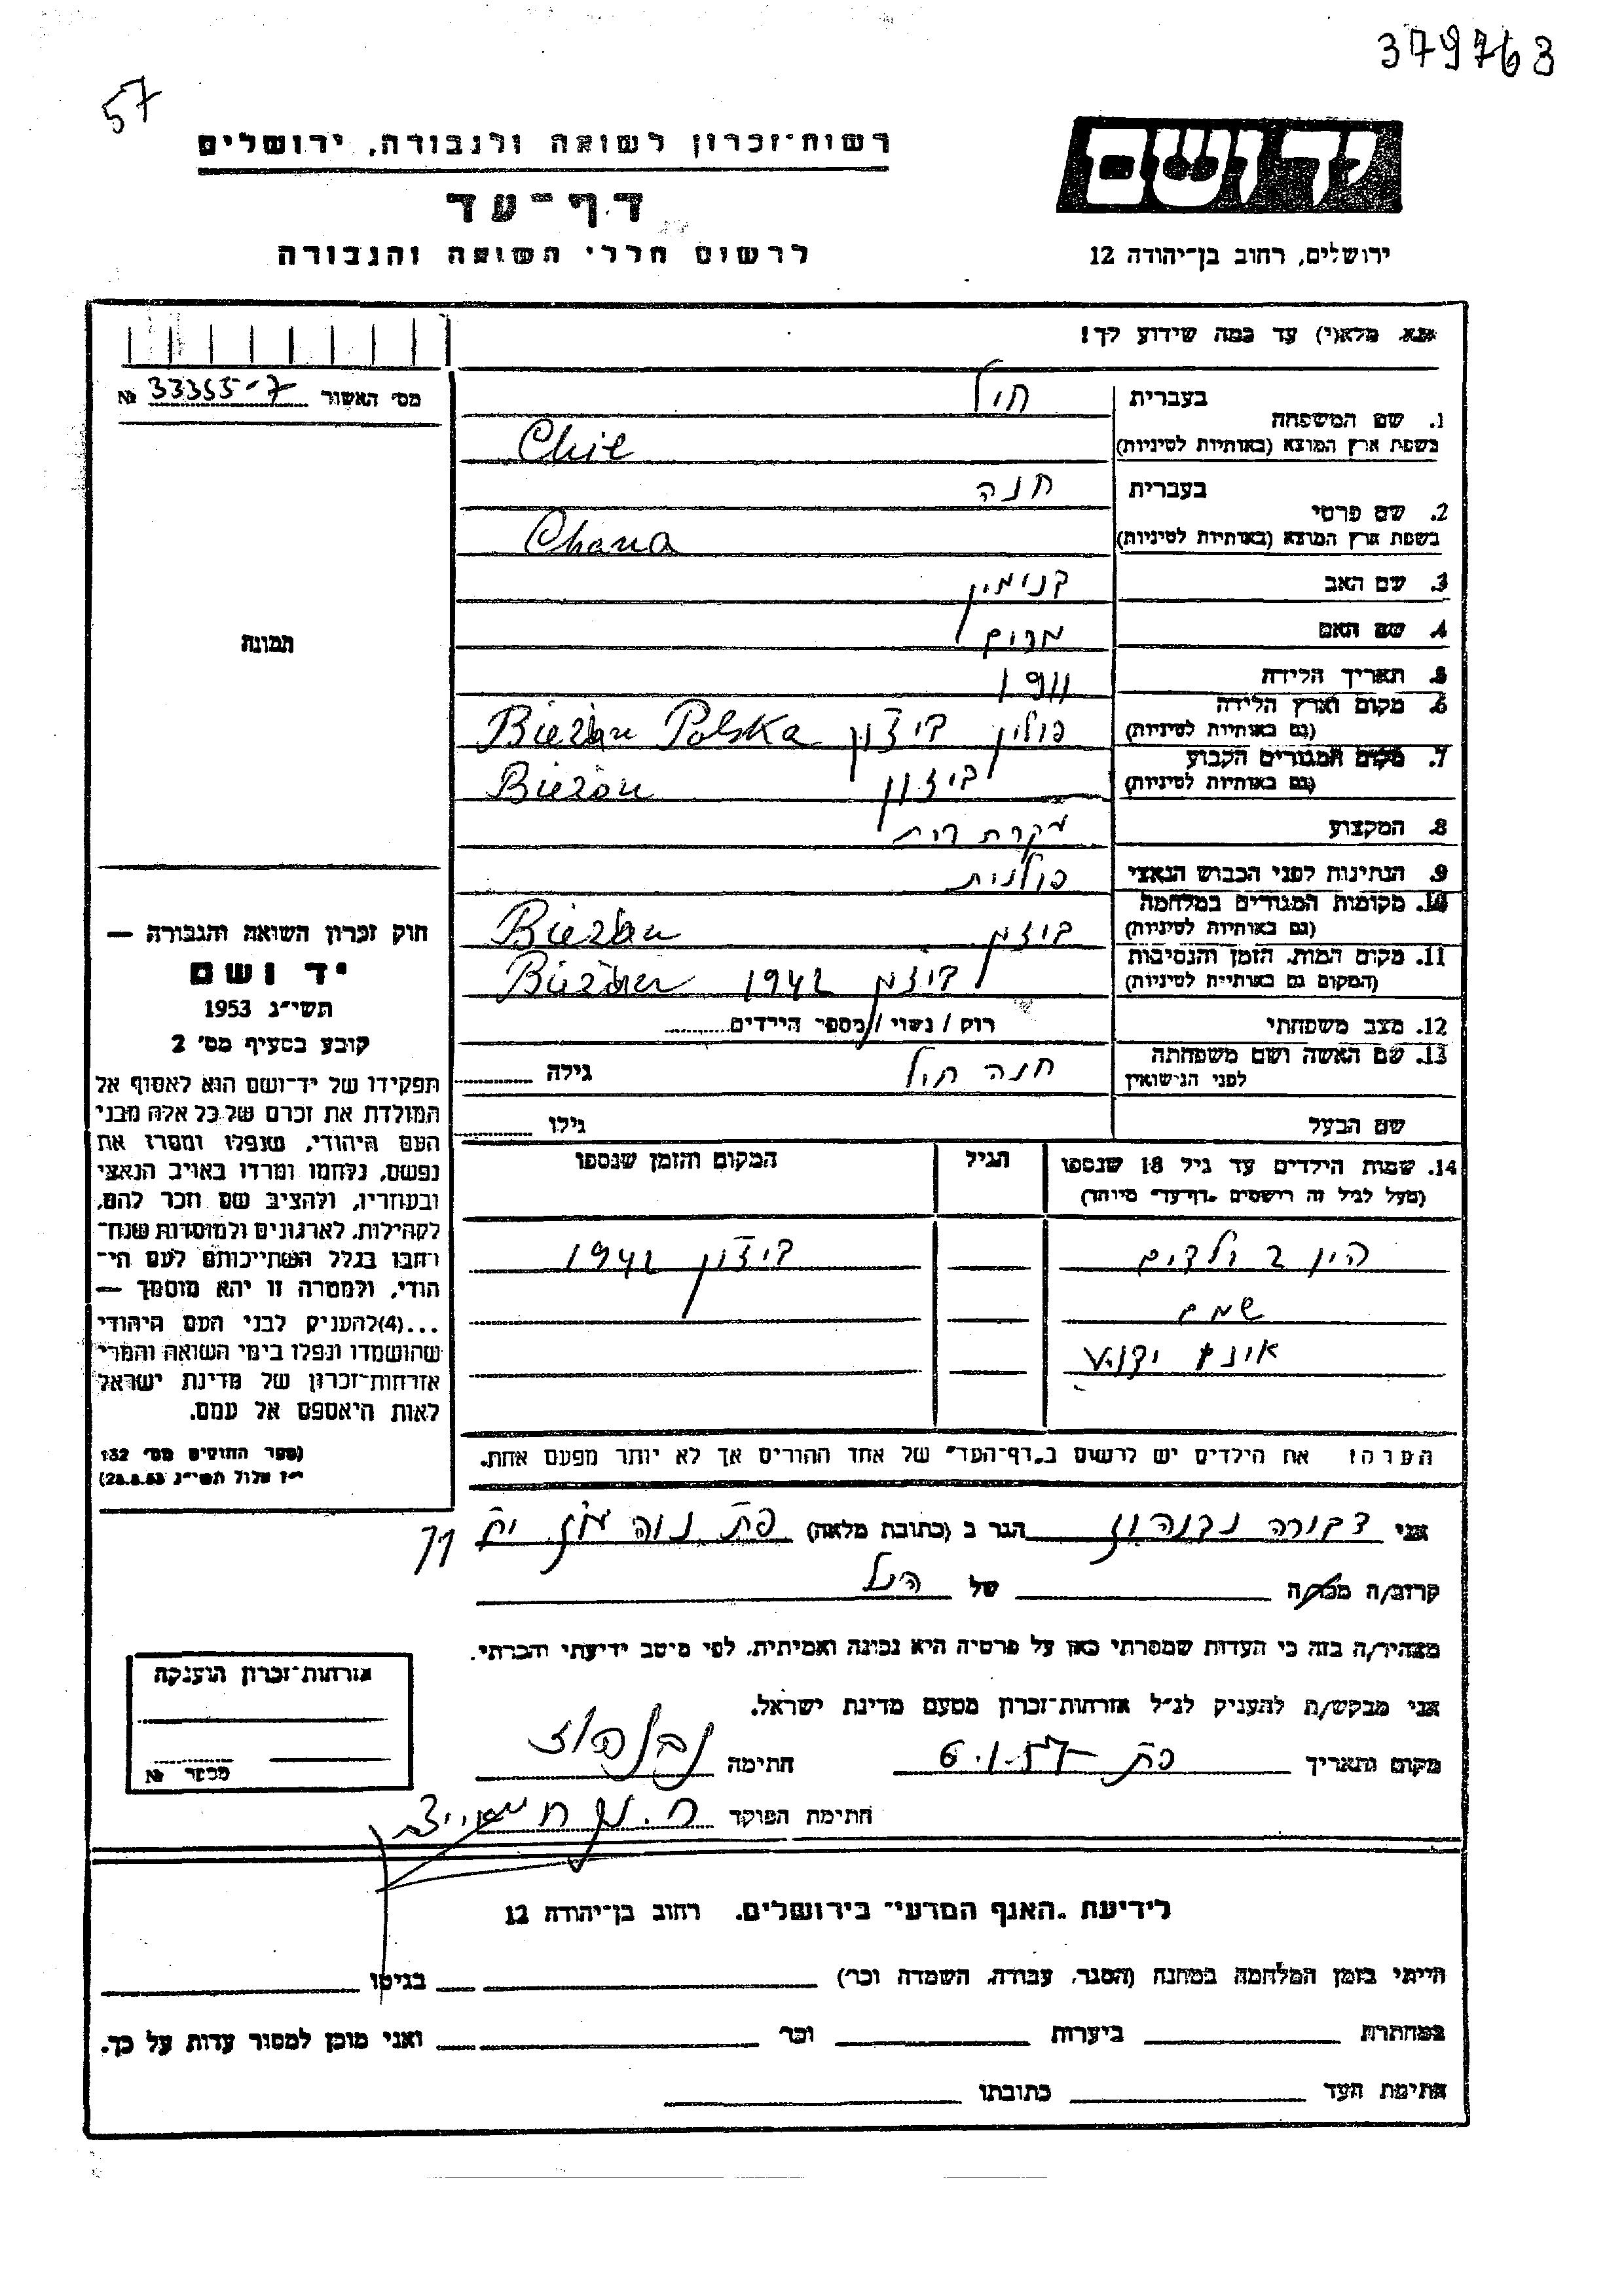 379763
57
יד ושם
רשות־זכרון לשואה ולגבורה, ירושלים
דף־עד
לרשום חללי השואה והגבורה
ירושלים, רחוב בן־יהודה 12
נא מלא(י) עד כמה שידוע לך!
מס׳ האשור 33355-7 №
תמונה
1. שם המשפחה
בעברית חיל
בשפת ארץ המוצא (באותיות לטיניות) Chil
2. שם פרטי
בעברית חנה
בשפת ארץ המוצא (באותיות לטיניות) Chana
3. שם האב בנימין
4. שם האם מרים
5. תאריך הלידה 1911
6. מקום וארץ הלידה
(גם באותיות לטיניות) פולין ביז'ון Bieżun Polska
7. מקום המגורים הקבוע
(גם באותיות לטיניות) ביז'ון Bieżun
8. המקצוע עקרת בית
9. הנתינות לפני הכבוש הנאצי פולנית
10. מקומות המגורים במלחמה
(גם באותיות לטיניות) ביזון Bieżun
11. מקום המות, הזמן והנסיבות
(המקום גם באותיות לטיניות) ביזון 1942 Bieżun
12. מצב משפחתי רוק / נשוי / מספר הילדים
13. שם האשה ושם משפחתה
לפני הנישואין חנה חיל גילה
שם הבעל גילו
14. שמות הילדים עד גיל 18 שנספו
(מעל לגיל זה רושמים „דף־עד״ מיוחד)
הגיל
המקום והזמן שנספו
היו 2 ילדים ביז'ון 1942
שמם
אינם ידוע
הערה: את הילדים יש לרשום ב„דף־העד״ של אחד ההורים אך לא יותר מפעם אחת.
חוק זכרון השואה והגבורה —
יד ושם
תשי״ג 1953
קובע בסעיף מס׳ 2
תפקידו של יד־ושם הוא לאסוף אל
המולדת את זכרם של כל אלה מבני
העם היהודי, שנפלו ומסרו את
נפשם, נלחמו ומרדו באויב הנאצי
ובעוזריו, ולהציב שם וזכר להם,
לקהילות, לארגונים ולמוסדות שנח־
רבו בגלל השתייכותם לעם הי־
הודי, ולמטרה זו יהא מוסמך —
...(4)להעניק לבני העם היהודי
שהושמדו ונפלו בימי השואה והמרי
אזרחות־זכרון של מדינת ישראל
לאות היאספם אל עמם.
(ספר החוקים מס׳ 132
י״ז אלול תשי״ג 28.8.53)
אני דבורה הגר ב (כתובת מלאה) פת נוה עוז
71
קרוב/ה מכר/ה של הנל
מצהיר/ה בזה כי העדות שמסרתי כאן על פרטיה היא נכונה ואמיתית, לפי מיטב ידיעתי והכרתי.
אני מבקש/ת להעניק לנ״ל אזרחות־זכרון מטעם מדינת ישראל.
מקום ותאריך פת 6.1.57 חתימה
חתימת הפוקד
אזרחות־זכרון הוענקה
מספר №
לידיעת „האגף המדעי״ בירושלים. רחוב בן־יהודה 12
הייתי בזמן המלחמה במחנה (הסגר, עבודה, השמדה וכו׳) בגיטו
במחתרת ביערות וכו׳ ואני מוכן למסור עדות על כך.
חתימת העד כתובתו